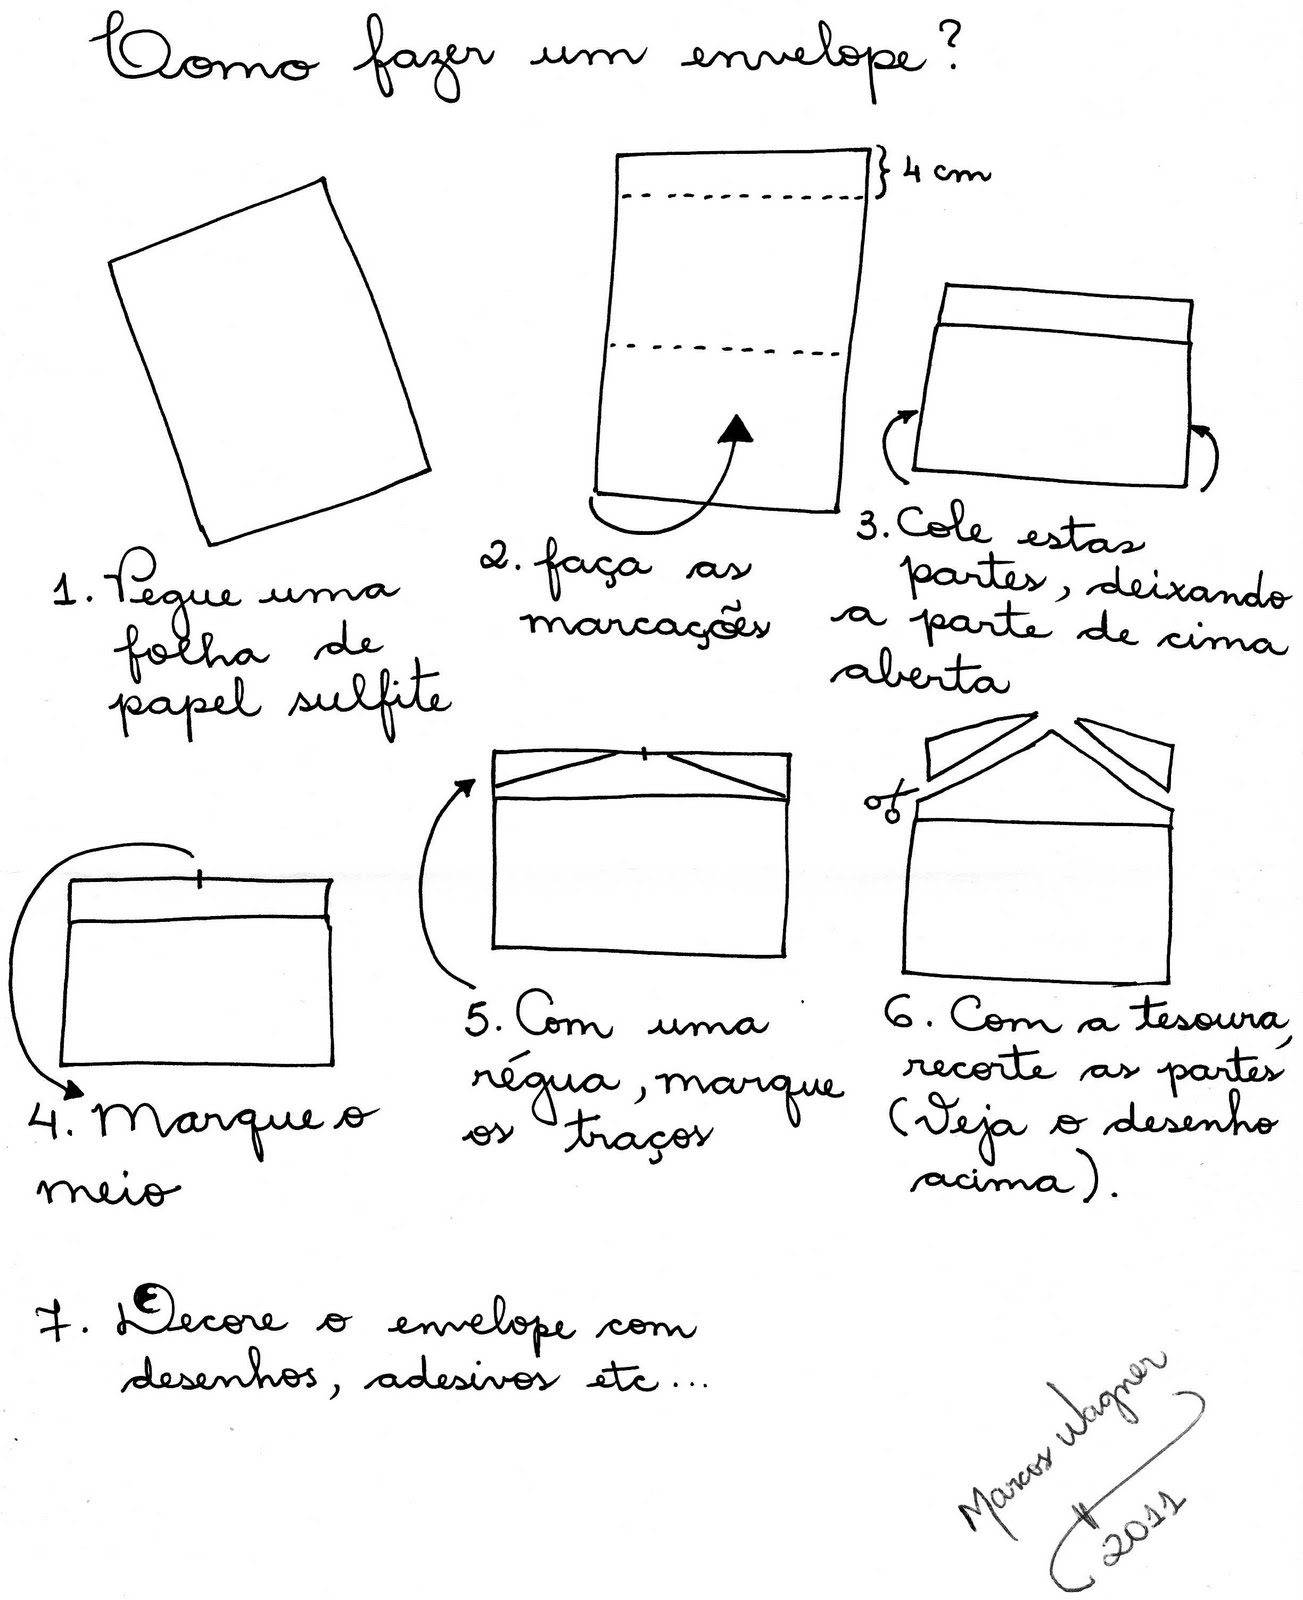 Como fazer um envelope?
4 cm
1. Pegue uma
folha de
papel sulfite
2. faça as
marcações
3. Cole estas
partes, deixando
a parte de cima
aberta
4. Marque o
meio
5. Com uma
régua, marque
os traços
6. Com a tesoura,
recorte as partes
(Veja o desenho
acima).
7. Decore o envelope com
desenhos, adesivos etc...
Marcos Wagner
2011